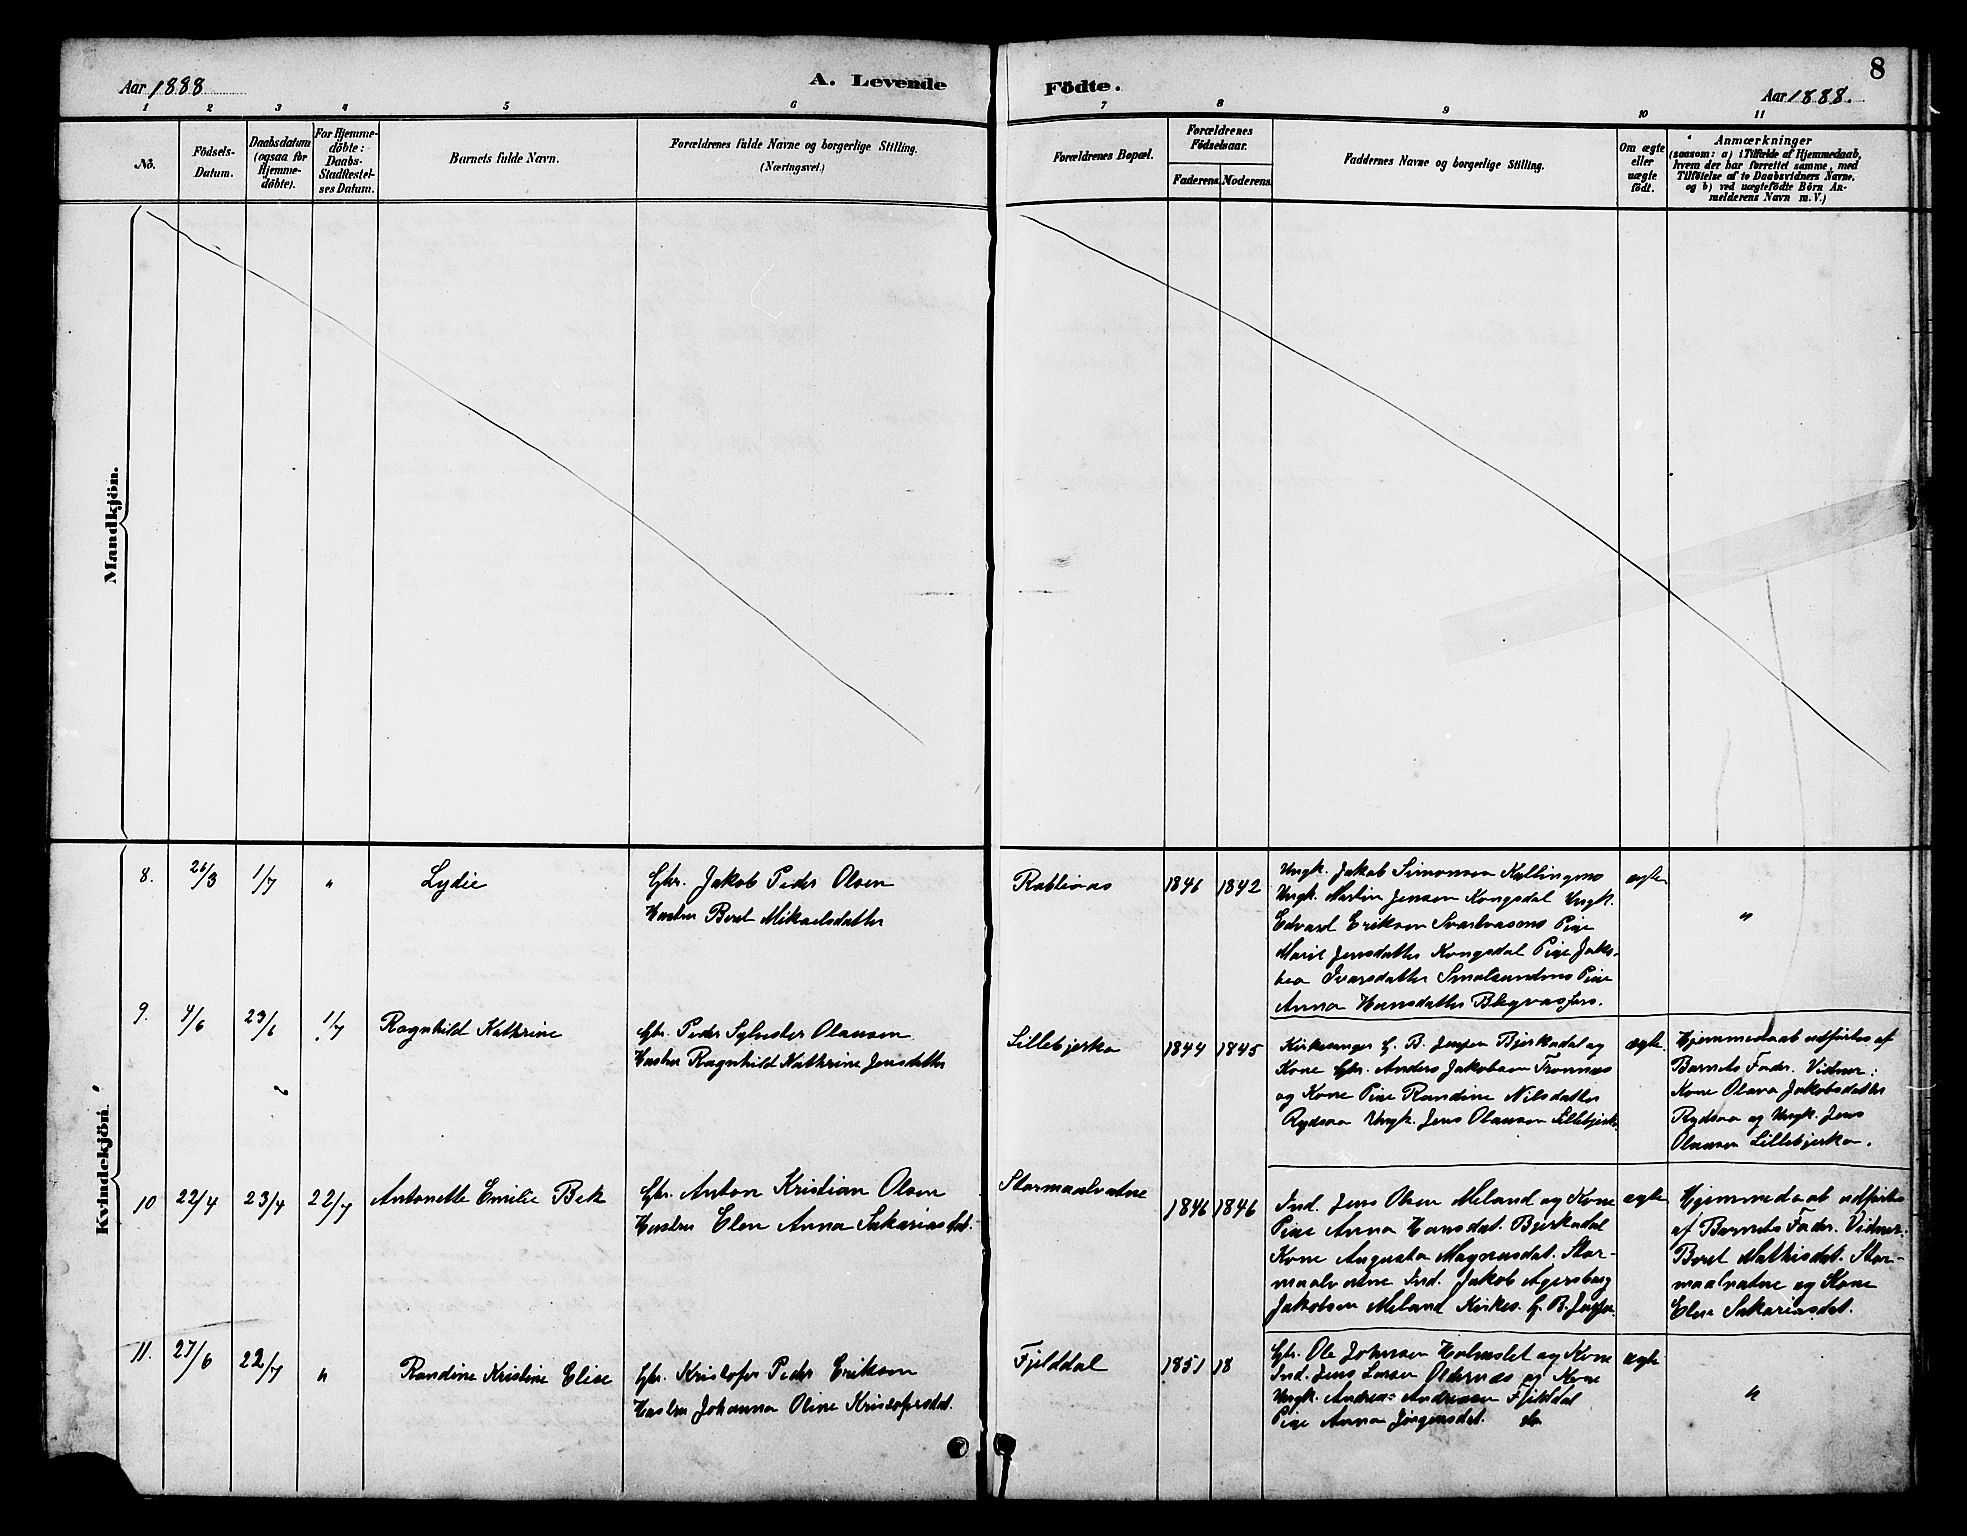 Aar 1888
A. Levende
Födte.
8
Aar 1888.
1 2 3 4 5 6 7 8 9 10 11
No.
Födsels-Datum.
Daabsdatum (ogsaa for Hjemme-döbte).
For Hjemme-döbte: Daabs-Stadfæstel-ses Datum.
Barnets fulde Navn.
Forældrenes fulde Navne og borgerlige Stilling.
(Næringsvei.)
Forældrenes Bopæl.
Forældrenes Födselsaar.
Faderens. Moderens.
Faddernes Navne og borgerlige Stilling.
Om ægte eller uægte födt.
Anmærkninger
(saasom: a) i Tilfælde af Hjemmedaab,
hvem der har forrettet samme, med
Tilföielse af to Daabsvidners Navne,
og b) ved uægtefödte Börn An-
melderens Navn m. V.)
Mandkjön.
Kvindekjön.
8. 26/3 1/7 "
Lydie
Gbr. Jakob Peder Olsen
Hustru Beret Mikaelsdatter
1846 1842
Ungk. Jakob Simonsen
Ungk. Martin Jensen Kongsdal Ungk.
Edvard Eriksen Pige
Marie Jensdatter Kongsdal Pige Jako-
bea Ivarsdatter Pige
Anna Hansdatter
ægte
"
9. 4/6 23/6 1/7
Ragnhild Kathrine
Gbr. Peder Sylvester Olausen
Hustru Ragnhild Kathrine Jensdatter
Lillebjerka
1844 1845
Kirkesanger G. B. Jensen Bjerkadal og
Kone Gbr. Anders Jakobsen Fronnes
og Kone Pige Randine Nilsdatter
Rydsaa Ungk. Jens Olausen Lillebjerk.
ægte.
Hjemmedaab udførtes af
Barnets Fader. Vidner:
Kone Olava Jakobsdatter
Rydsaa og Ungk. Jens
Olausen Lillebjerka.
10 22/4 23/4 22/7
Antonette Emilie Bek
Gbr. Anton Kristian Olsen
Hustru Elen Anna Sakariasdat.
Stormaalvatne
1846 1846
Ind. Jens Olsen Meland og Kone
Pige Anna Hansdat. Bjerkadal
Kone Augusta Magnusdat. Stor-
maalvatne Ind. Jakob Agersborg
Jakobsen Meland Kirkes. G. B. Jensen.
ægte
Hjemmedaab udførtes
af Barnets Fader. Vidner:
Beret Mathisdat. Stor-
maalvatne og Kone
Elen Sakariasdat.
11. 27/6 22/7 "
Randine Kristine Elise
Gbr. Kristofer Peder Eriksen
Hustru Johanna Oline Kristofersdat.
Fjelddal
1851 18
Gbr. Ole Johnsen og Kone
Ind. Jens Larsen Oldernæs og Kone
Ungk. Andreas Andreasen Fjelddal
Pige Anna Jørgensdat. do
ægte
"